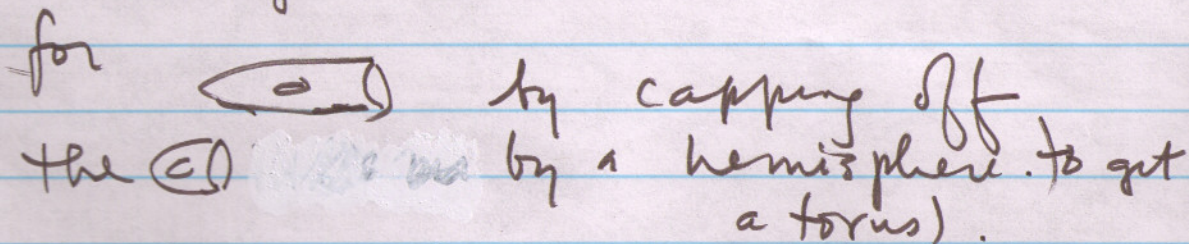 for
by capping off
the by a hemisphere. to get
a torus).